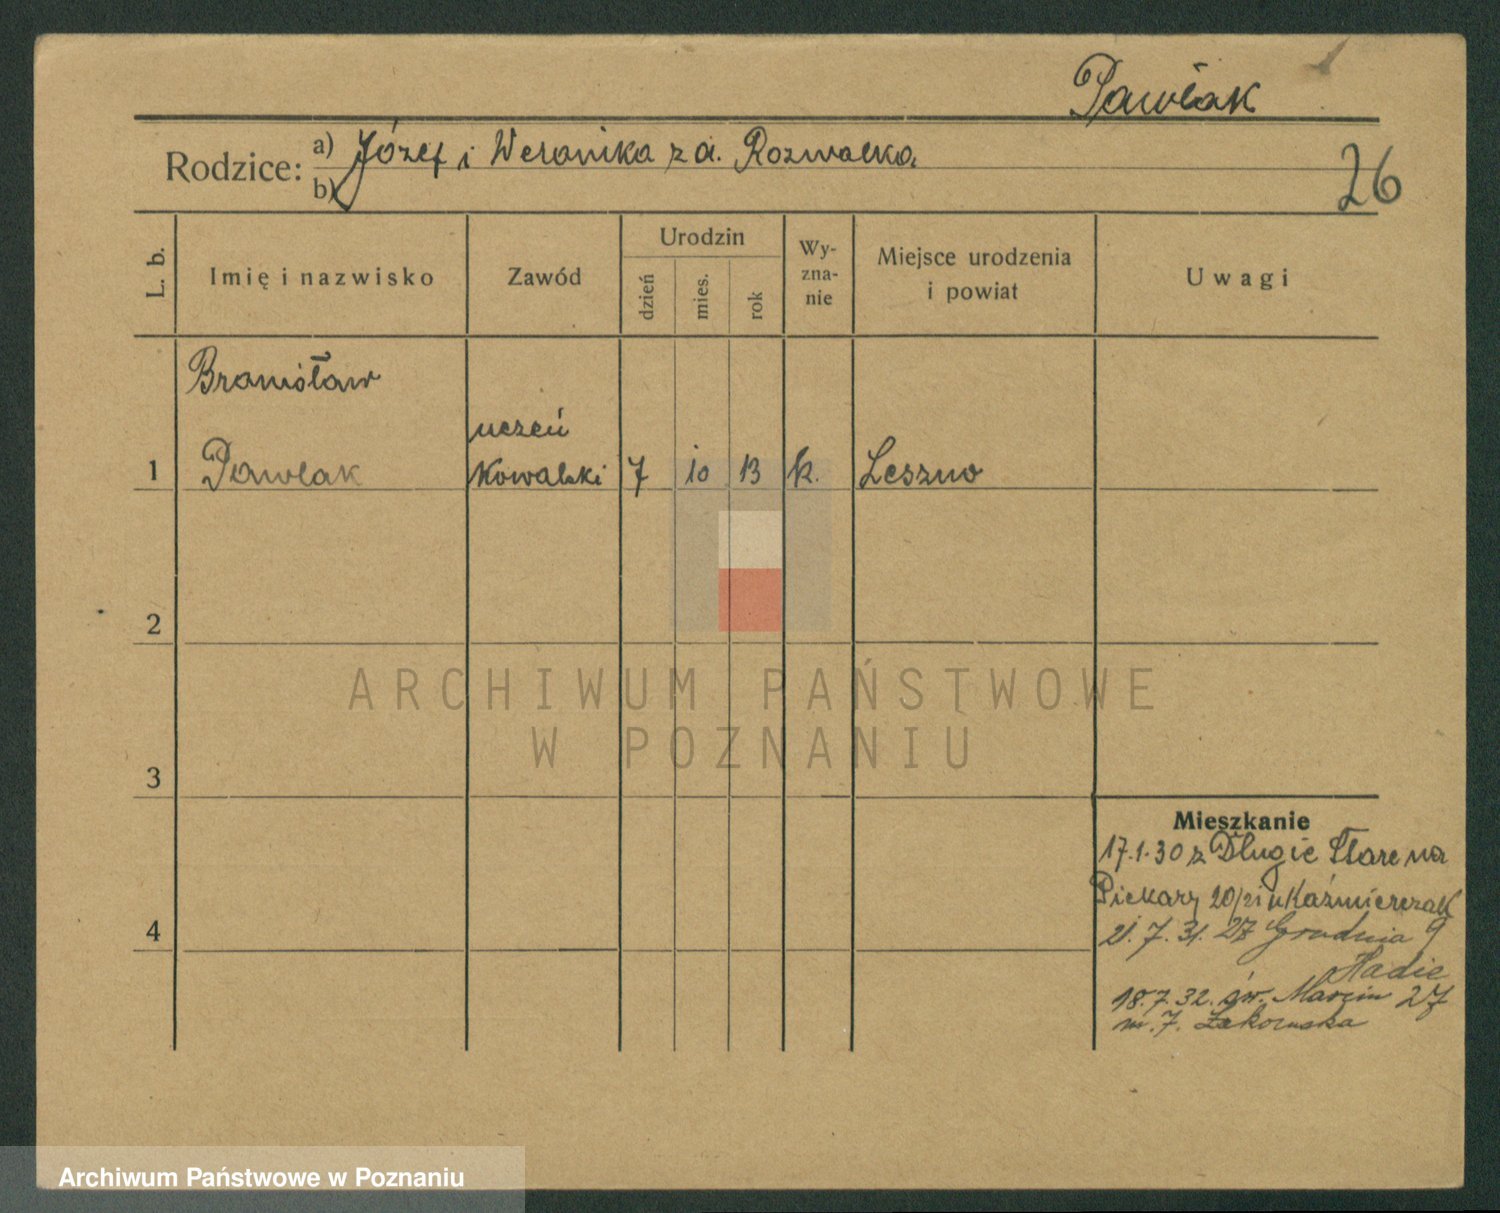 Pawlak
Rodzice: a) Józef i Weronika z d. Rozwalka
b)
26
L. b.
Imię i nazwisko
Zawód
Urodzin
dzień
mies.
rok
Wy-
zna-
nie
Miejsce urodzenia
i powiat
Uwagi
Bronisław
uczeń
1 Pawlak kowalski 7 10 13 k. Leszno
2
3
4
ARCHIWUM PAŃSTWOWE
W POZNANIU
Mieszkanie
17.1.30 z Długie Stare na
Piekary 20/21 u Kaźmierczak
21.7.31. 27 Grudnia 9
18.7.32. św. Marcin 27
m. 7.
Archiwum Państwowe w Poznaniu